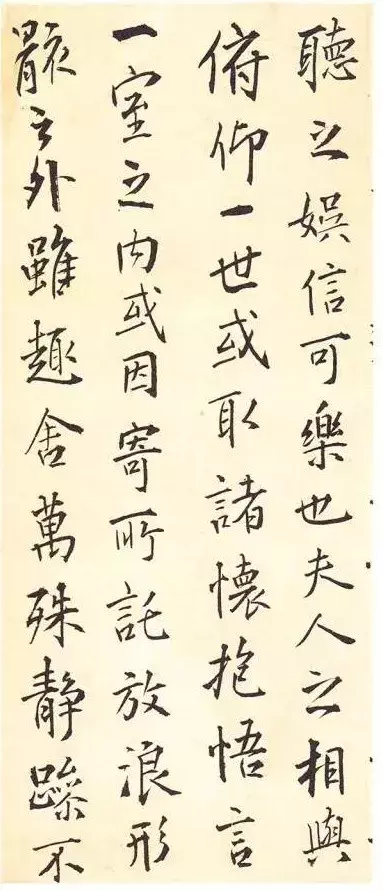 聽之娛信可樂也夫人之相與
俯仰一世或取諸懷抱悟言
一室之内或因寄所託放浪形
骸之外雖趣舍萬殊靜躁不